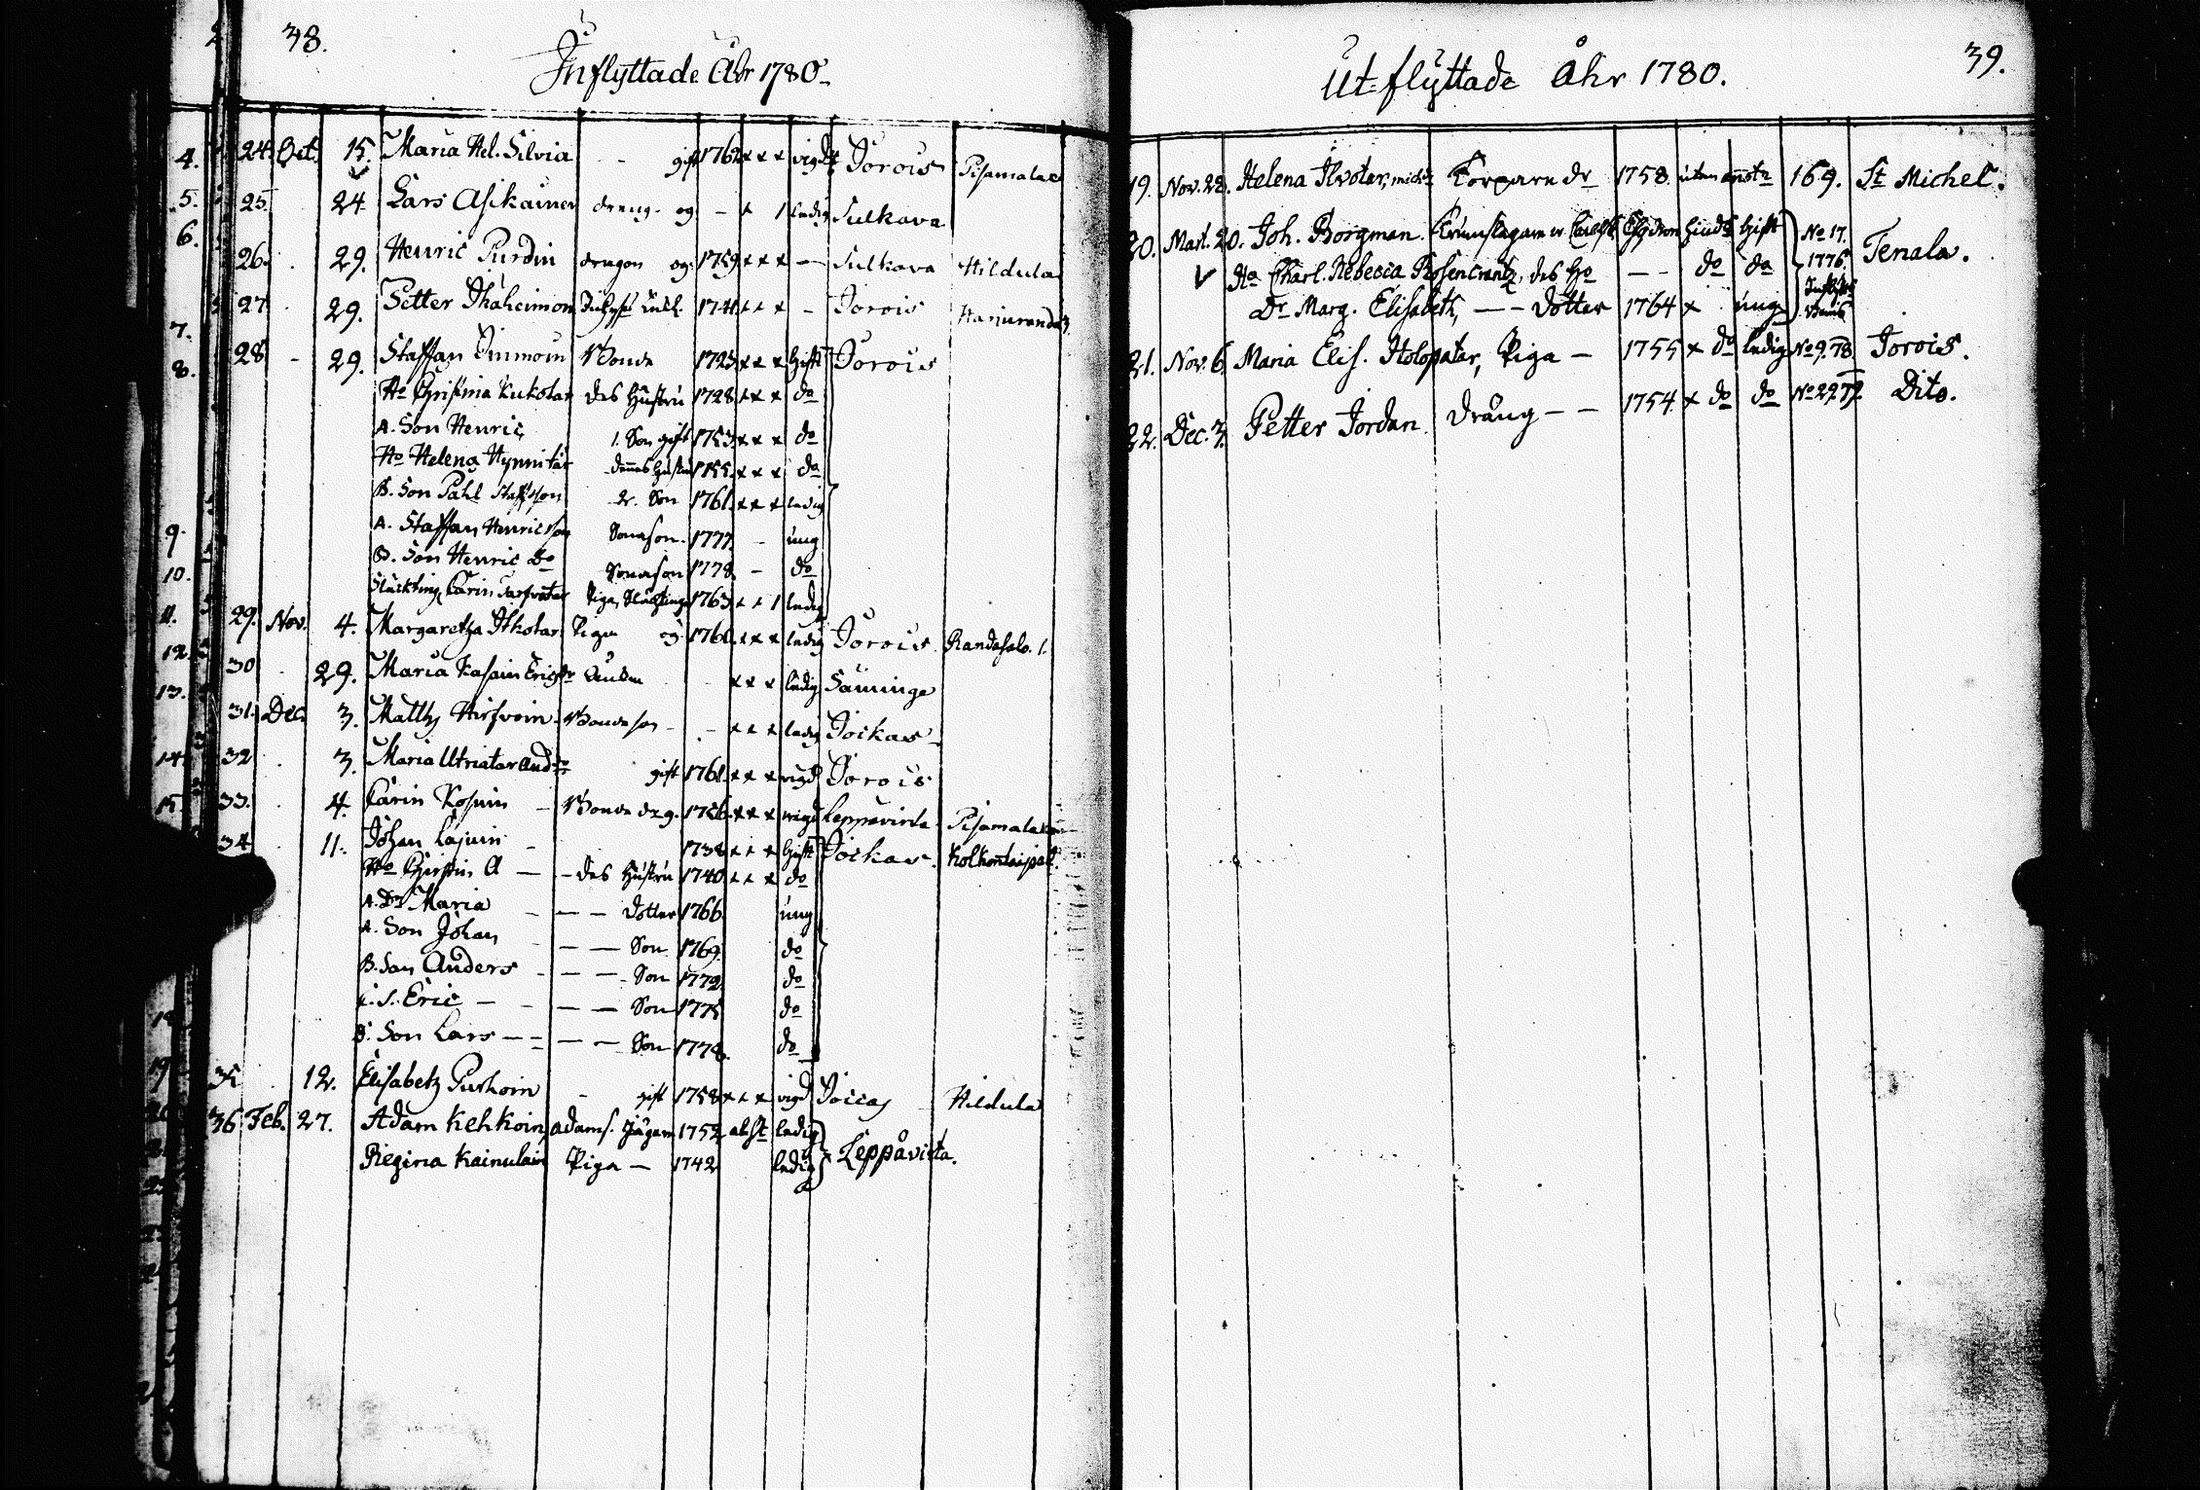 38.
Inflyttade Åhr 1780.
4. 24. Oct. 15. Maria Hel. Silvia - gift 1762 x x x vigd Jorois Pisamalax
5. 25. 24. Lars Asikainen dreng og - x 1 ledig Sulkava
6. 26. 29. Henric Purdin dragon og. 1759. x x x — Sulkava Hildula
27. 29. Petter Ihaleimon 1741. x x x - Jorois
7.
8. 28 - 29. Staffan Immoin Bonde 1723. x x x Gift Jorois
Ho Christina Kukotar des Hustru 1728. x x x do
A. Son Henric 1. Son gift 1753. x x x do
Ho Helena Hynnitär dennes Hustru 1755. x x x do
B. Son Pahl Staffsson 2. Son 1761. x x x ledig
9. A. Staffan Henricsson Sonason. 1777. - ung
10. B. Son Henric Do Sonason 1778. - do
Släckting Carin Piga, Släckting 1763. x x 1 ledig
11. 29. Nov. 4. Margaretha Ihkotar Piga og. 1760. x x x ledig Jorois. Randasalo. 1.
12. 30 29. Maria Kasain Ericsdr Enka x x x ledig Säminge
13. 31. Dec. 3. Matths Hirfvoin Bondeson - - x x x ledig Jockas -
14. 32 3. Maria Utriatar And.dr gift 1761. x x x vigd Jorois
15. 33. 4. Carin Kosuin - Bonde d. og. 1756. x x x vigd Leppävirda Pisamalax
34 11. Johan Lajuin - 1738 x x x Gift Jockas - Kolkontaipal.
Ho Christin A — - des Hustru 1740 x x x do
A. Dr Maria - — — dotter 1766. ung
A. Son Johan - — — Son 1769. do
B. Son Anders - — — - Son 1772. do
C. S. Eric — - — — Son 1775 do
D. Son Lars — — — — Son 1778. do
19 35 12. Elisabeth Purhoin - gift 1758 x x x vigd Joccas Hildula
36 Feb. 27. Adam Kehkoin, adams. Jägare 1752 abst. ledig
Regina Kainulain Piga — 1742 ledig Leppävirta.
39.
Ut-flyttade åhr 1780.
19. Nov. 22. Helena Ilvotar, Torpare dr 1758. utan anotn 169. St Michel.
20. Mart. 20. Joh. Borgman. Gift No 17.
Ho Charl. Rebecca Rosencrantz, des Ho — - do do 1776. Tenala.
Dr Marg. Elisabeth, — — Dotter 1764 x ung
21. Nov. 6. Maria Elis. Holopatar, Piga — 1755 x do ledig No 9. 78. Jorois.
22. Dec. 3. Petter Jordan. dräng — — 1754. x do do No 22. 79. Dito.